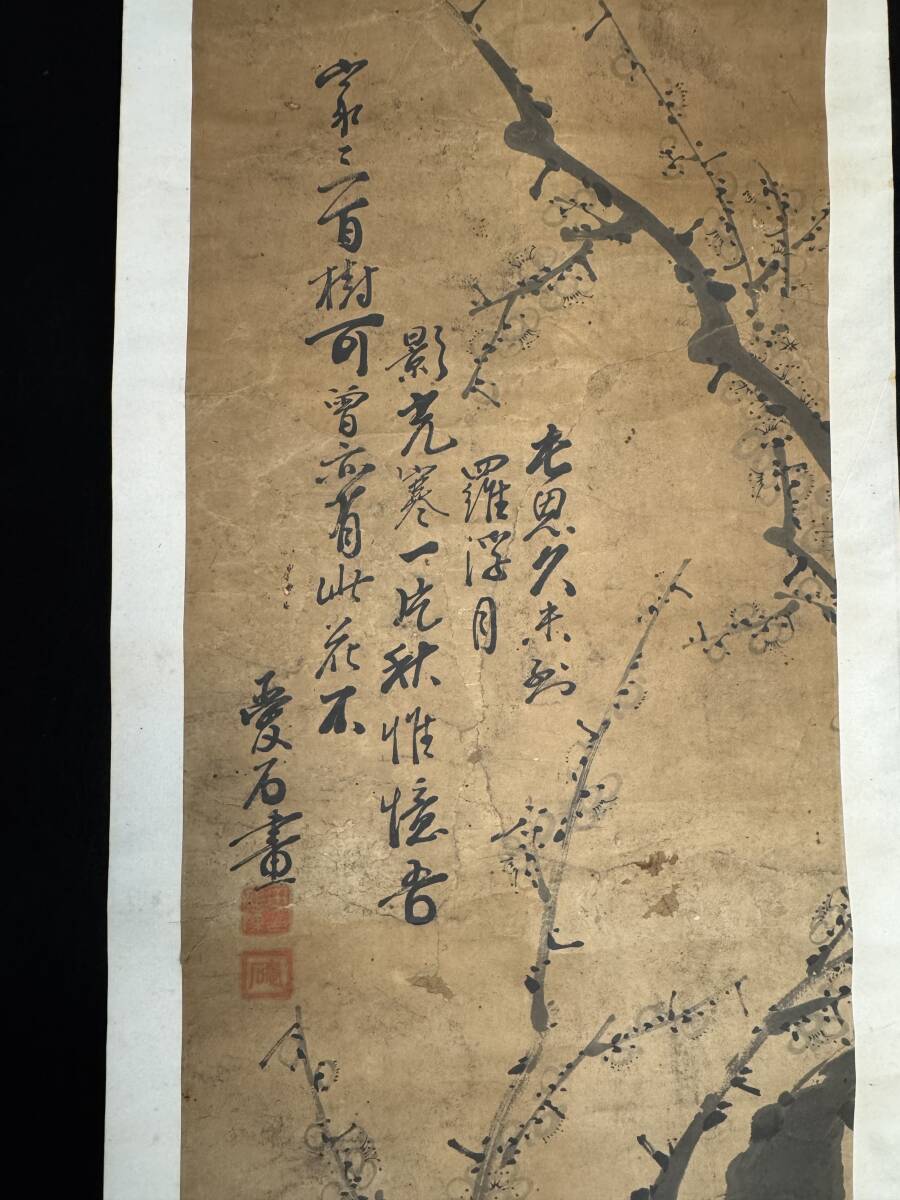 長思久未到
羅浮月
影荒寒一片秋惟憶吾
家三百樹可曾亦有此花不
愛石畫